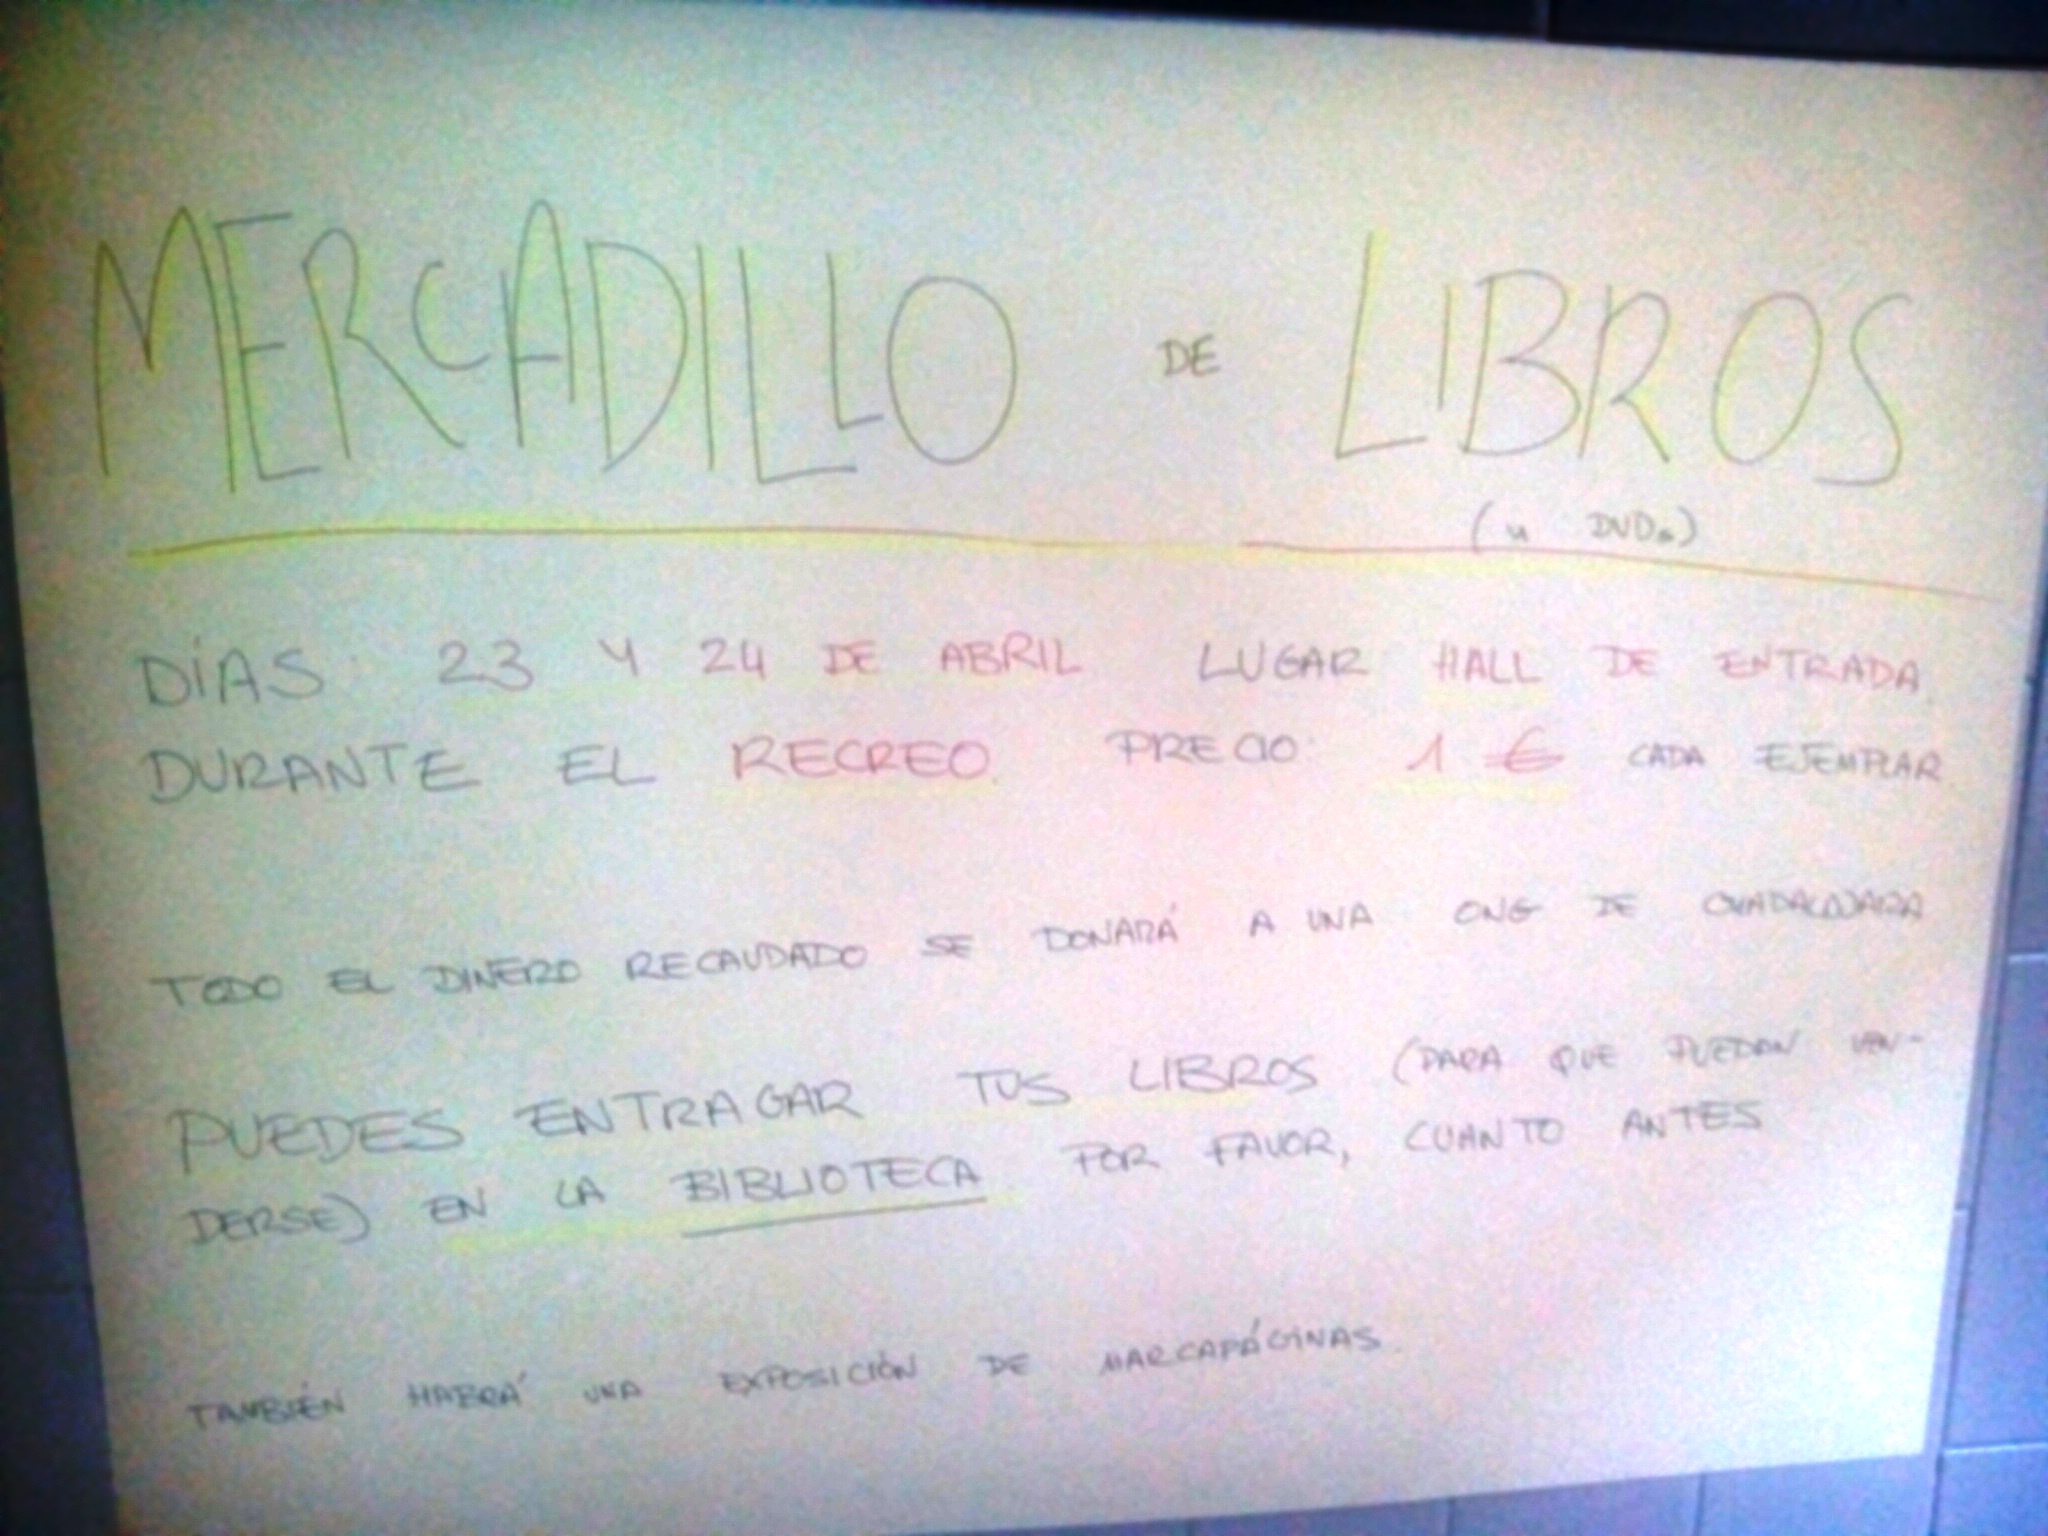 MERCADILLO DE LIBROS
(y DVDs)
DÍAS: 23 Y 24 DE ABRIL LUGAR HALL DE ENTRADA.
DURANTE EL RECREO. PRECIO: 1 € CADA EJEMPLAR
TODO EL DINERO RECAUDADO SE DONARÁ A UNA ONG DE GUADALAJARA
PUEDES ENTRAGAR TUS LIBROS (PARA QUE PUEDAN VEN-
DERSE) EN LA BIBLIOTECA POR FAVOR, CUANTO ANTES
TAMBIÉN HABRÁ UNA EXPOSICIÓN DE MARCAPÁGINAS.